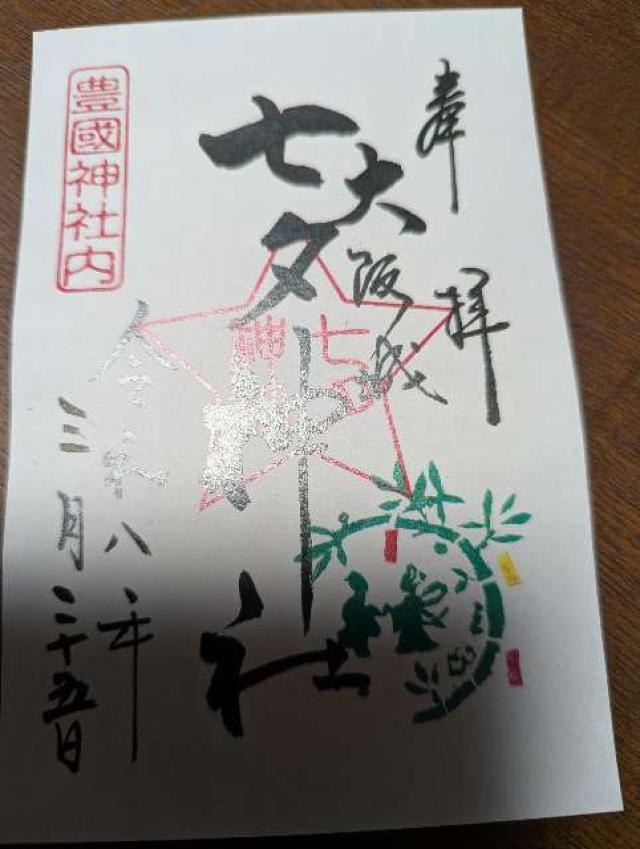 奉拝
大阪城
七夕神社
七夕
神社
令和八年
三月二十五日
豊國神社内